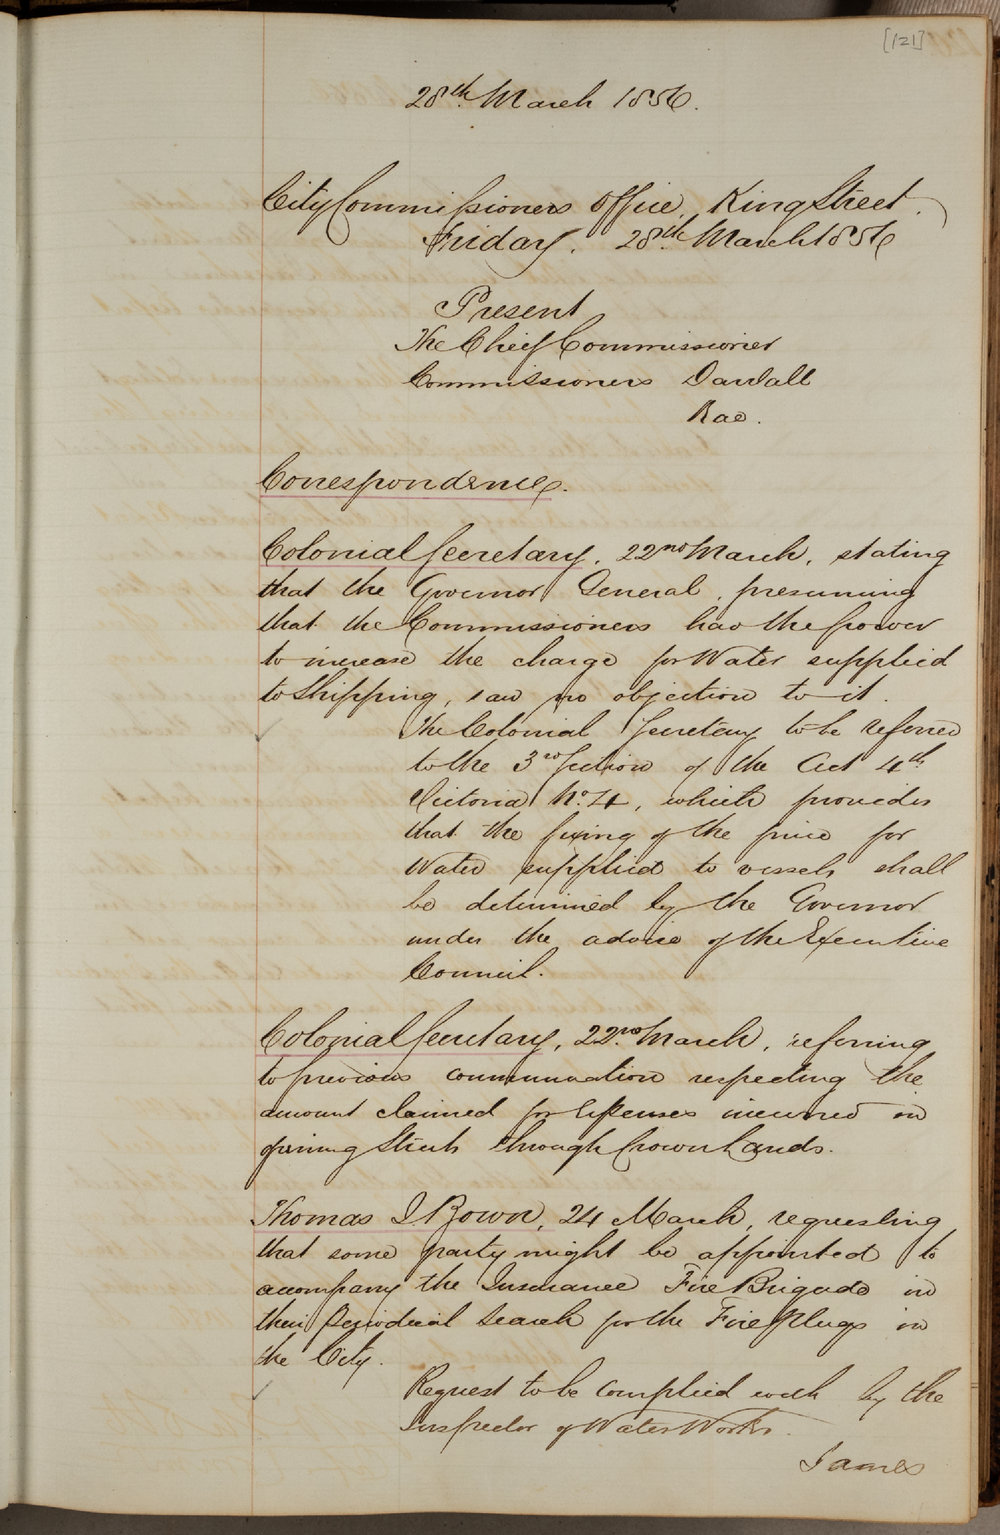 [121]
28th March 1856.
City Commissioners Office, King Street.
Friday, 28th March 1856
Present
The Chief Commissioner
Commissioners Darvall
Rae.
Correspondence.
Colonial Secretary, 22nd March, stating
that the Governor General, presuming
that the Commissioners had the power
to increase the charge for Water supplied
to Shipping, saw no objection to it.
The Colonial Secretary to be referred
to the 3rd Section of the Act 4th
Victoria No. 4, which provides
that the fixing of the price for
Water supplied to vessels shall
be determined by the Governor
under the advice of the Executive
Council.
Colonial Secretary, 22nd March, referring
to previous communication respecting the
amount claimed for Expenses incurred in
opening Streets through Crown Lands.
Thomas J Bown, 24 March, requesting
that some party might be appointed to
accompany the Insurance Fire Brigade in
their Periodical Search for the Fire Plugs in
the City.
Request to be Complied with by the
Inspector of Water Works.
James